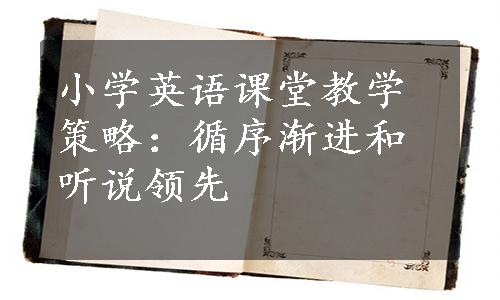 小学英语课堂教学
策略：循序渐进和
听说领先